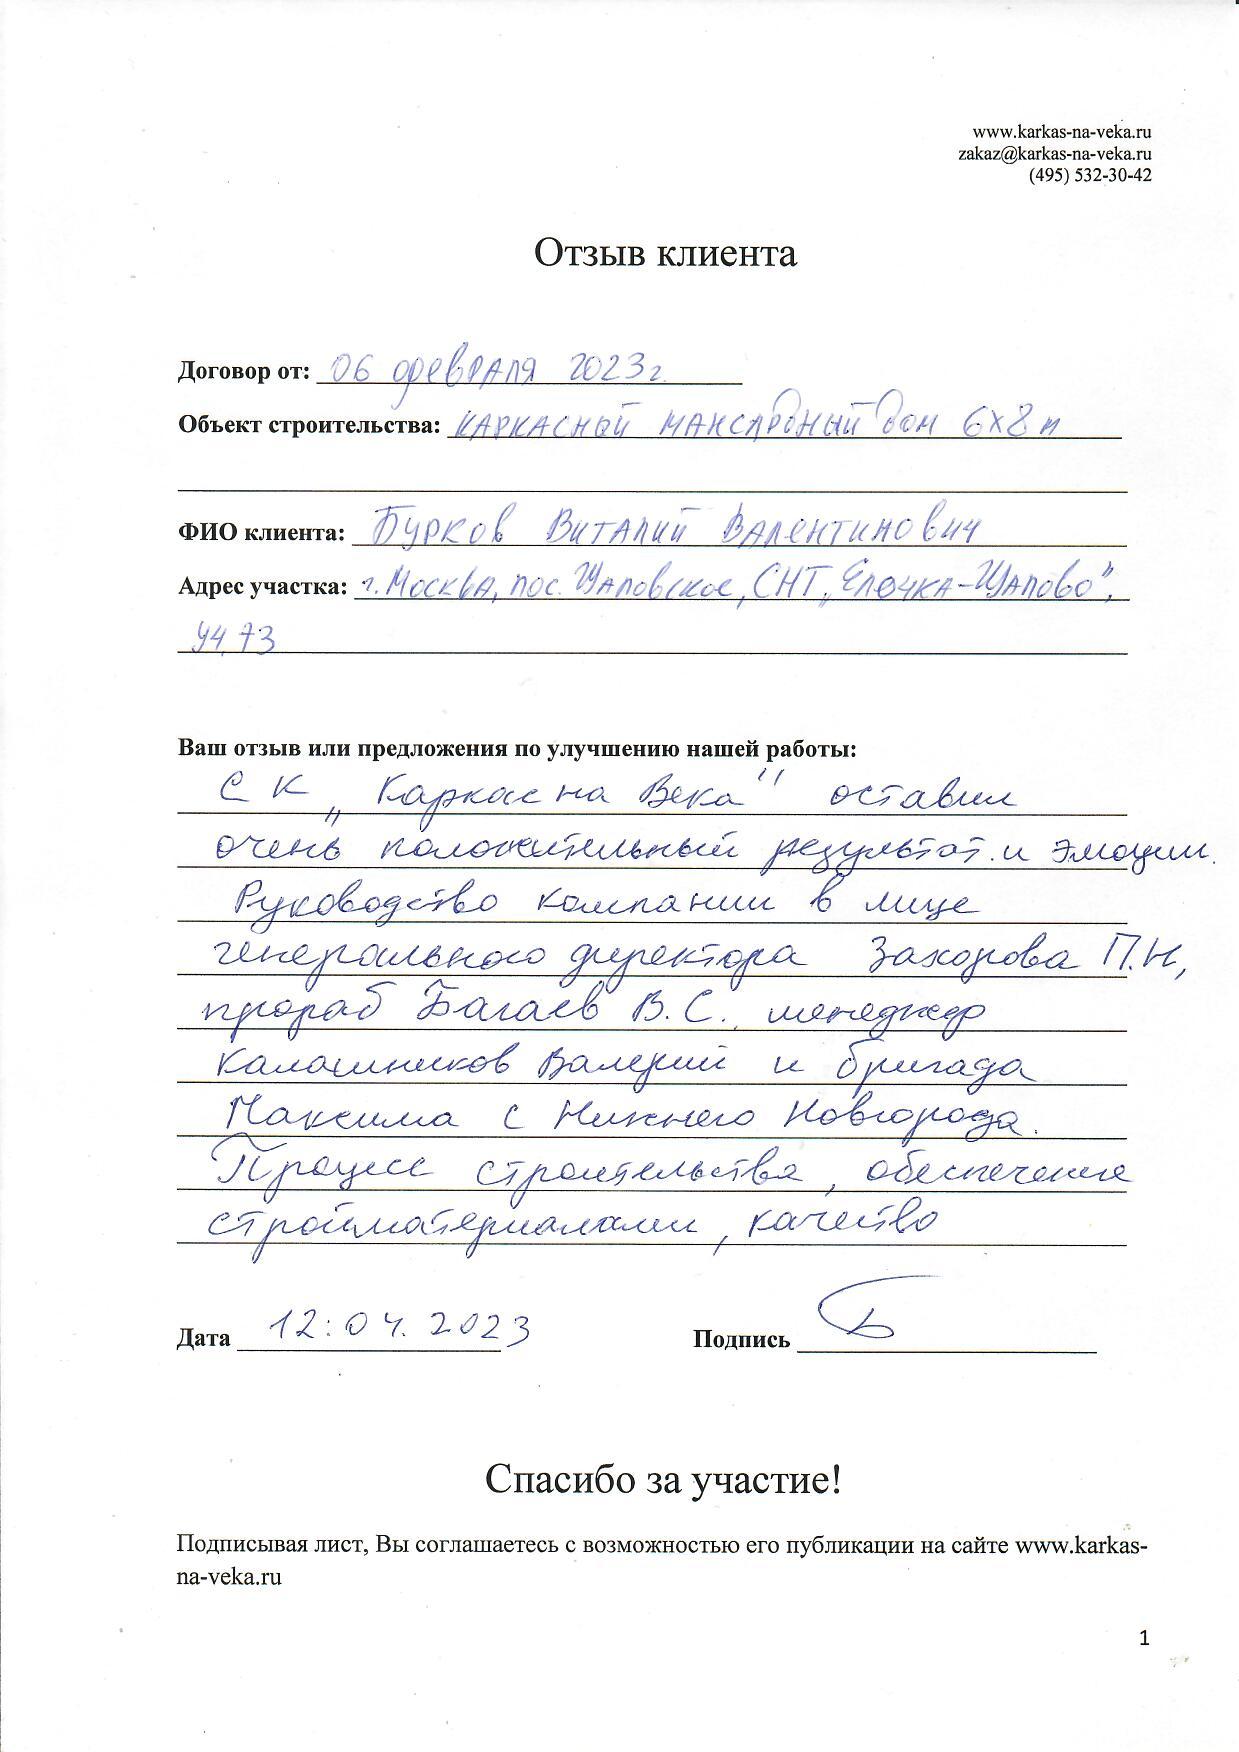 www.karkas-na-veka.ru
zakaz@karkas-na-veka.ru
(495) 532-30-42
Отзыв клиента
Договор от: 06 февраля 2023г.
Объект строительства: каркасный мансардный дом 6х8 м
ФИО клиента: Бурков Виталий Валентинович
Адрес участка: г. Москва, пос. Щаповское, СНТ „Елочка-Щапово",
уч. 73
Ваш отзыв или предложения по улучшению нашей работы:
СК „Каркас на Века" оставил
очень положительный результат и эмоции.
Руководство компании в лице
генерального директора Захорова П.Н,
прораб Багаев В.С. менеджер
Калашников Валерий и бригада
Максима с Нижнего Новгорода.
Процесс строительства, обеспечение
стройматериалами, качество
Дата 12.04.2023 Подпись
Спасибо за участие!
Подписывая лист, Вы соглашаетесь с возможностью его публикации на сайте www.karkas-
na-veka.ru
1